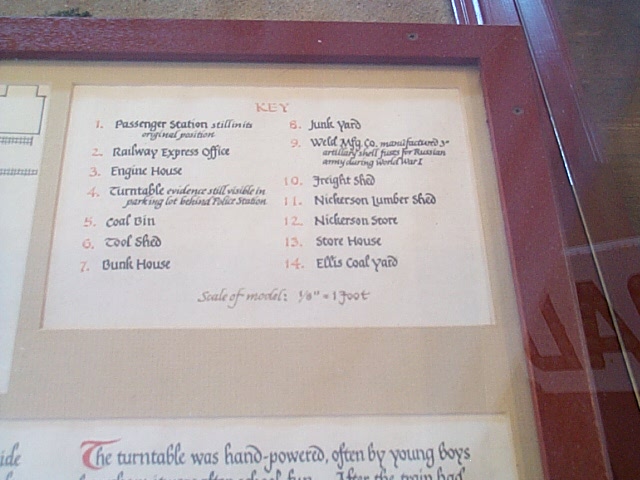 KEY
1. Passenger Station still in its
original position
2. Railway Express Office
3. Engine House
4. Turntable evidence still visible in
parking lot behind Police Station
5. Coal Bin
6. Tool Shed
7. Bunk House
8. Junk Yard
9. Weld Mfg. Co. manufactured 3"
artillery shell fuses for Russian
army during World War I
10. Freight Shed
11. Nickerson Lumber Shed
12. Nickerson Store
13. Store House
14. Ellis Coal Yard
Scale of model: 1/8" = 1 Foot
The turntable was hand-powered, often by young boys
after school fun. After the train had